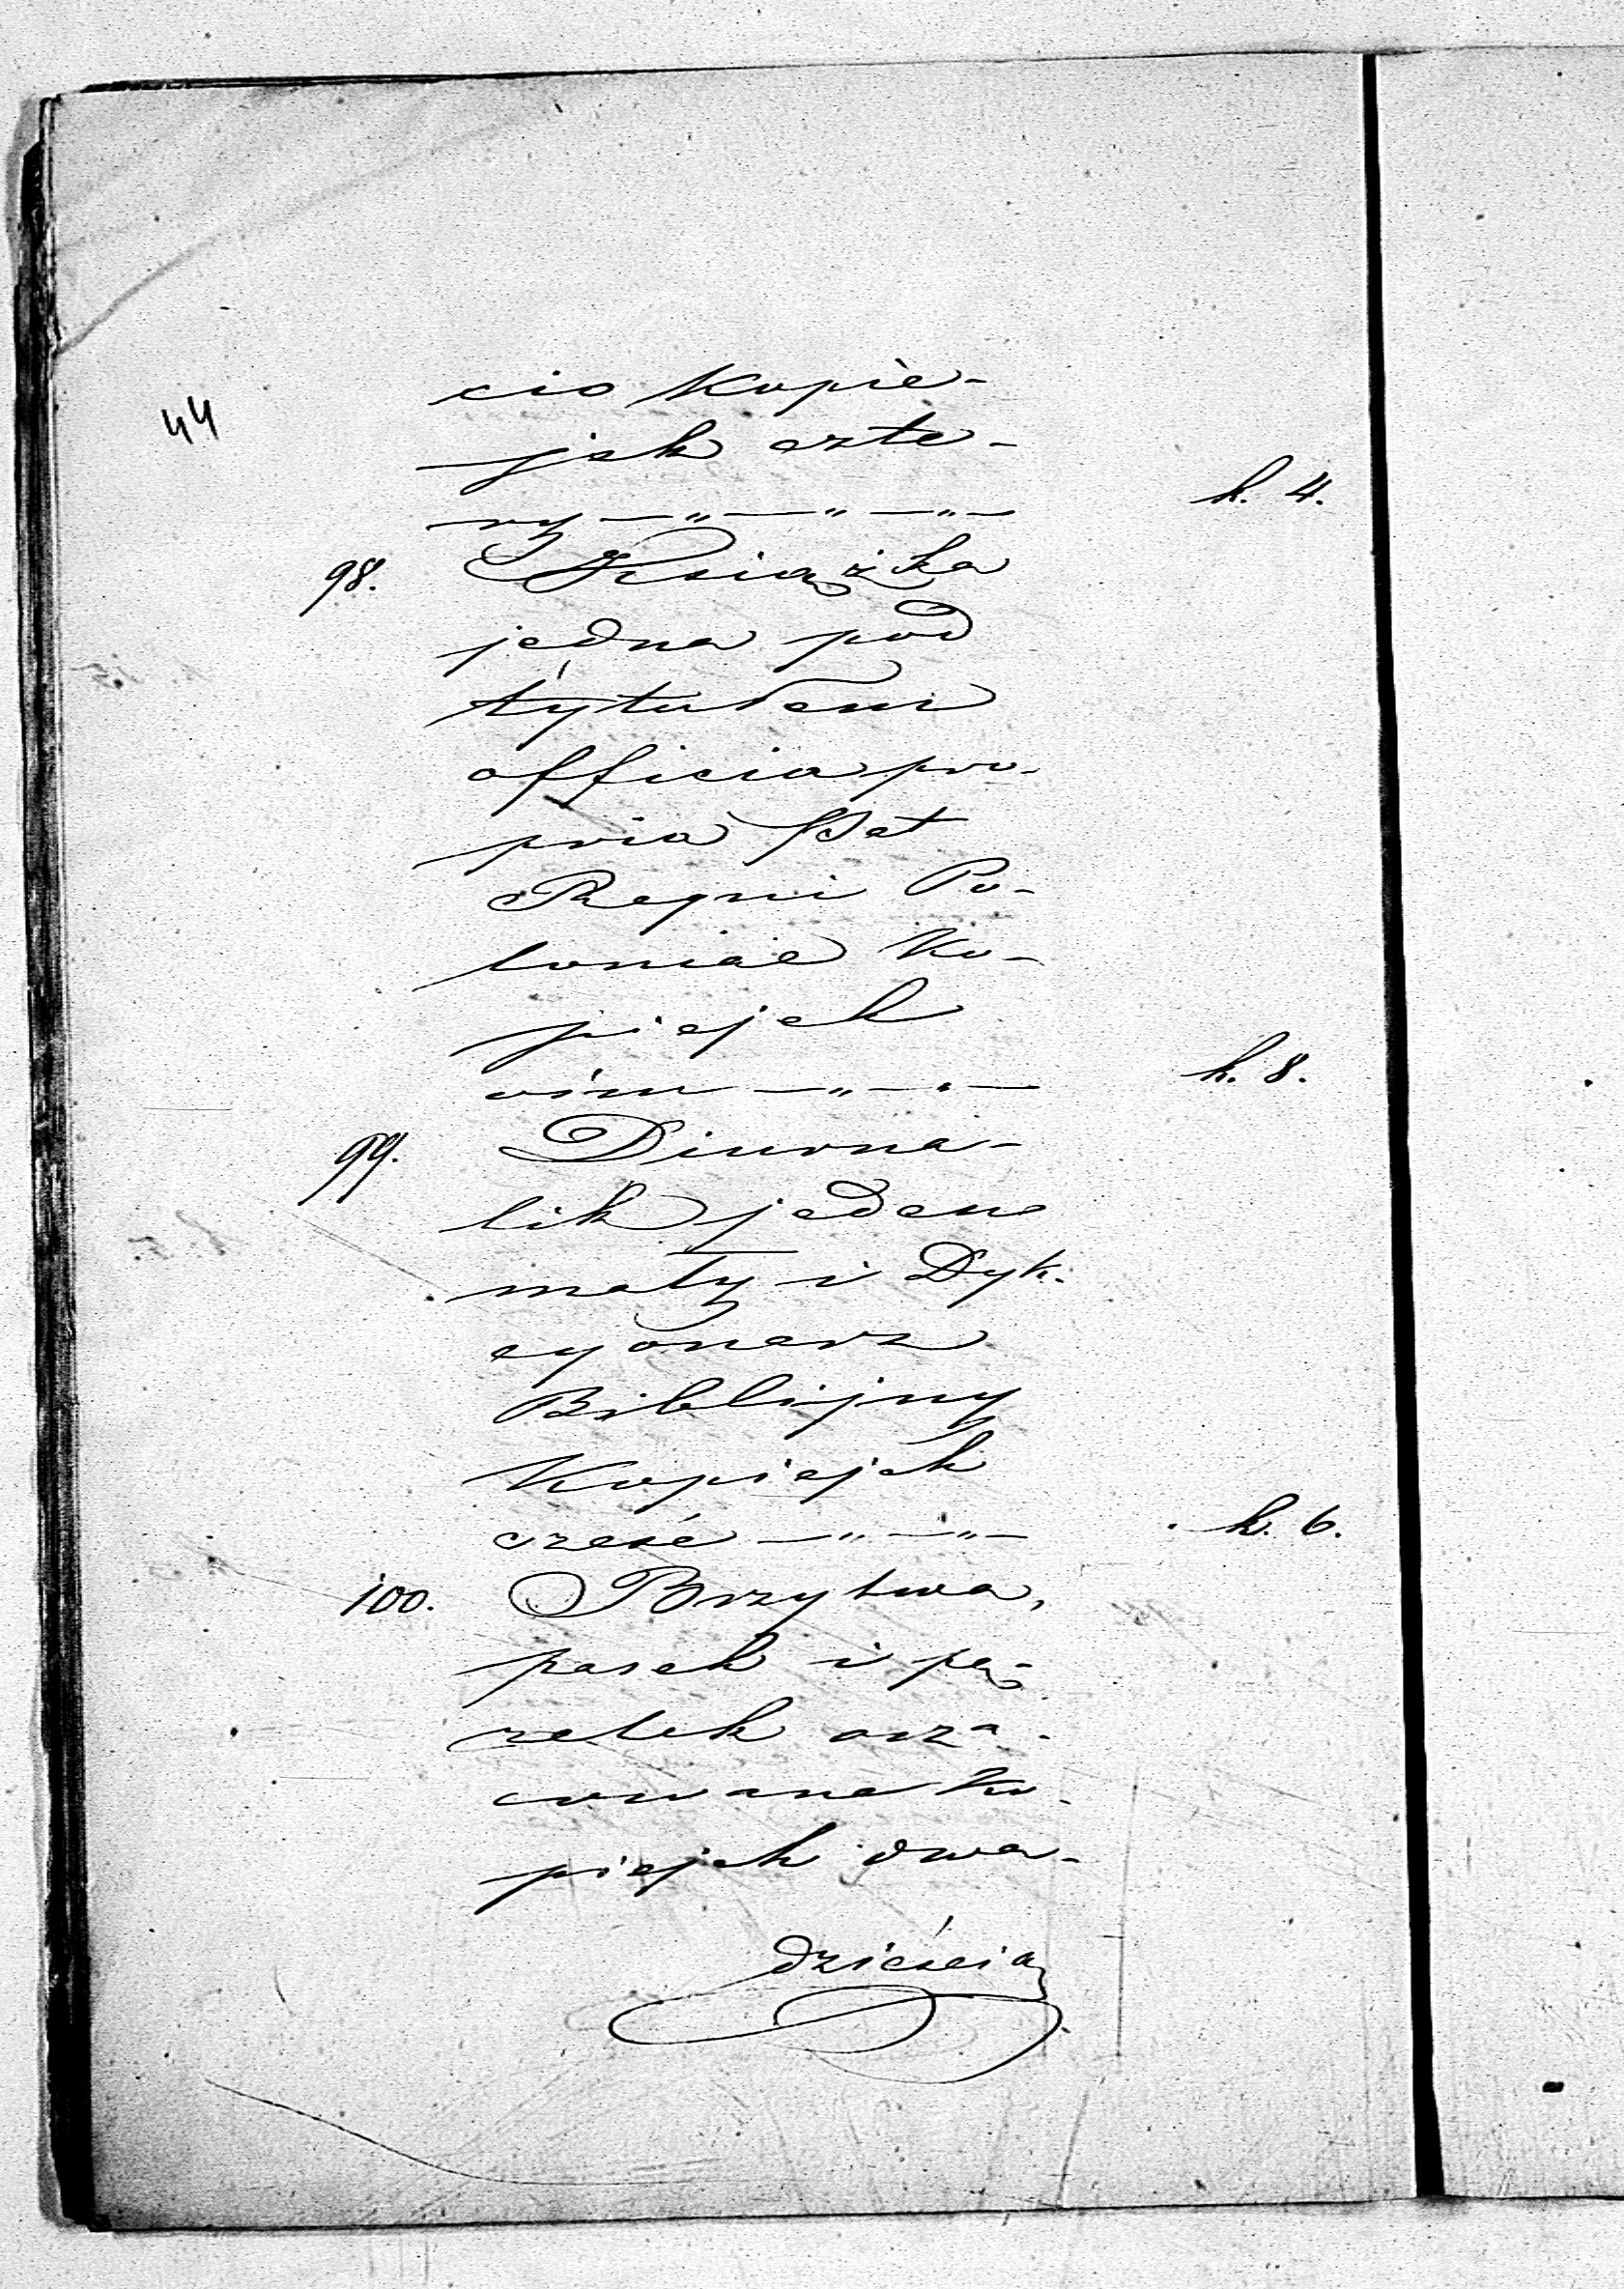 44
cio Kopie-
jek czte-
ry —"—"—"— k. 4.
98. Książka
jedna pod
tytułem
officia pro-
pria Pat
Regni Po-
loniae Ko-
piejek
ośm —"—"— k. 8.
99. Diurna-
lik jeden
mały i Dyk-
cyonarz
Biblijny
Kopiejek
sześć —"—"— k. 6.
100. Brzytwa,
pasek i pę-
zelek osza-
cowane Ko-
piejek dwa-
dzieścia